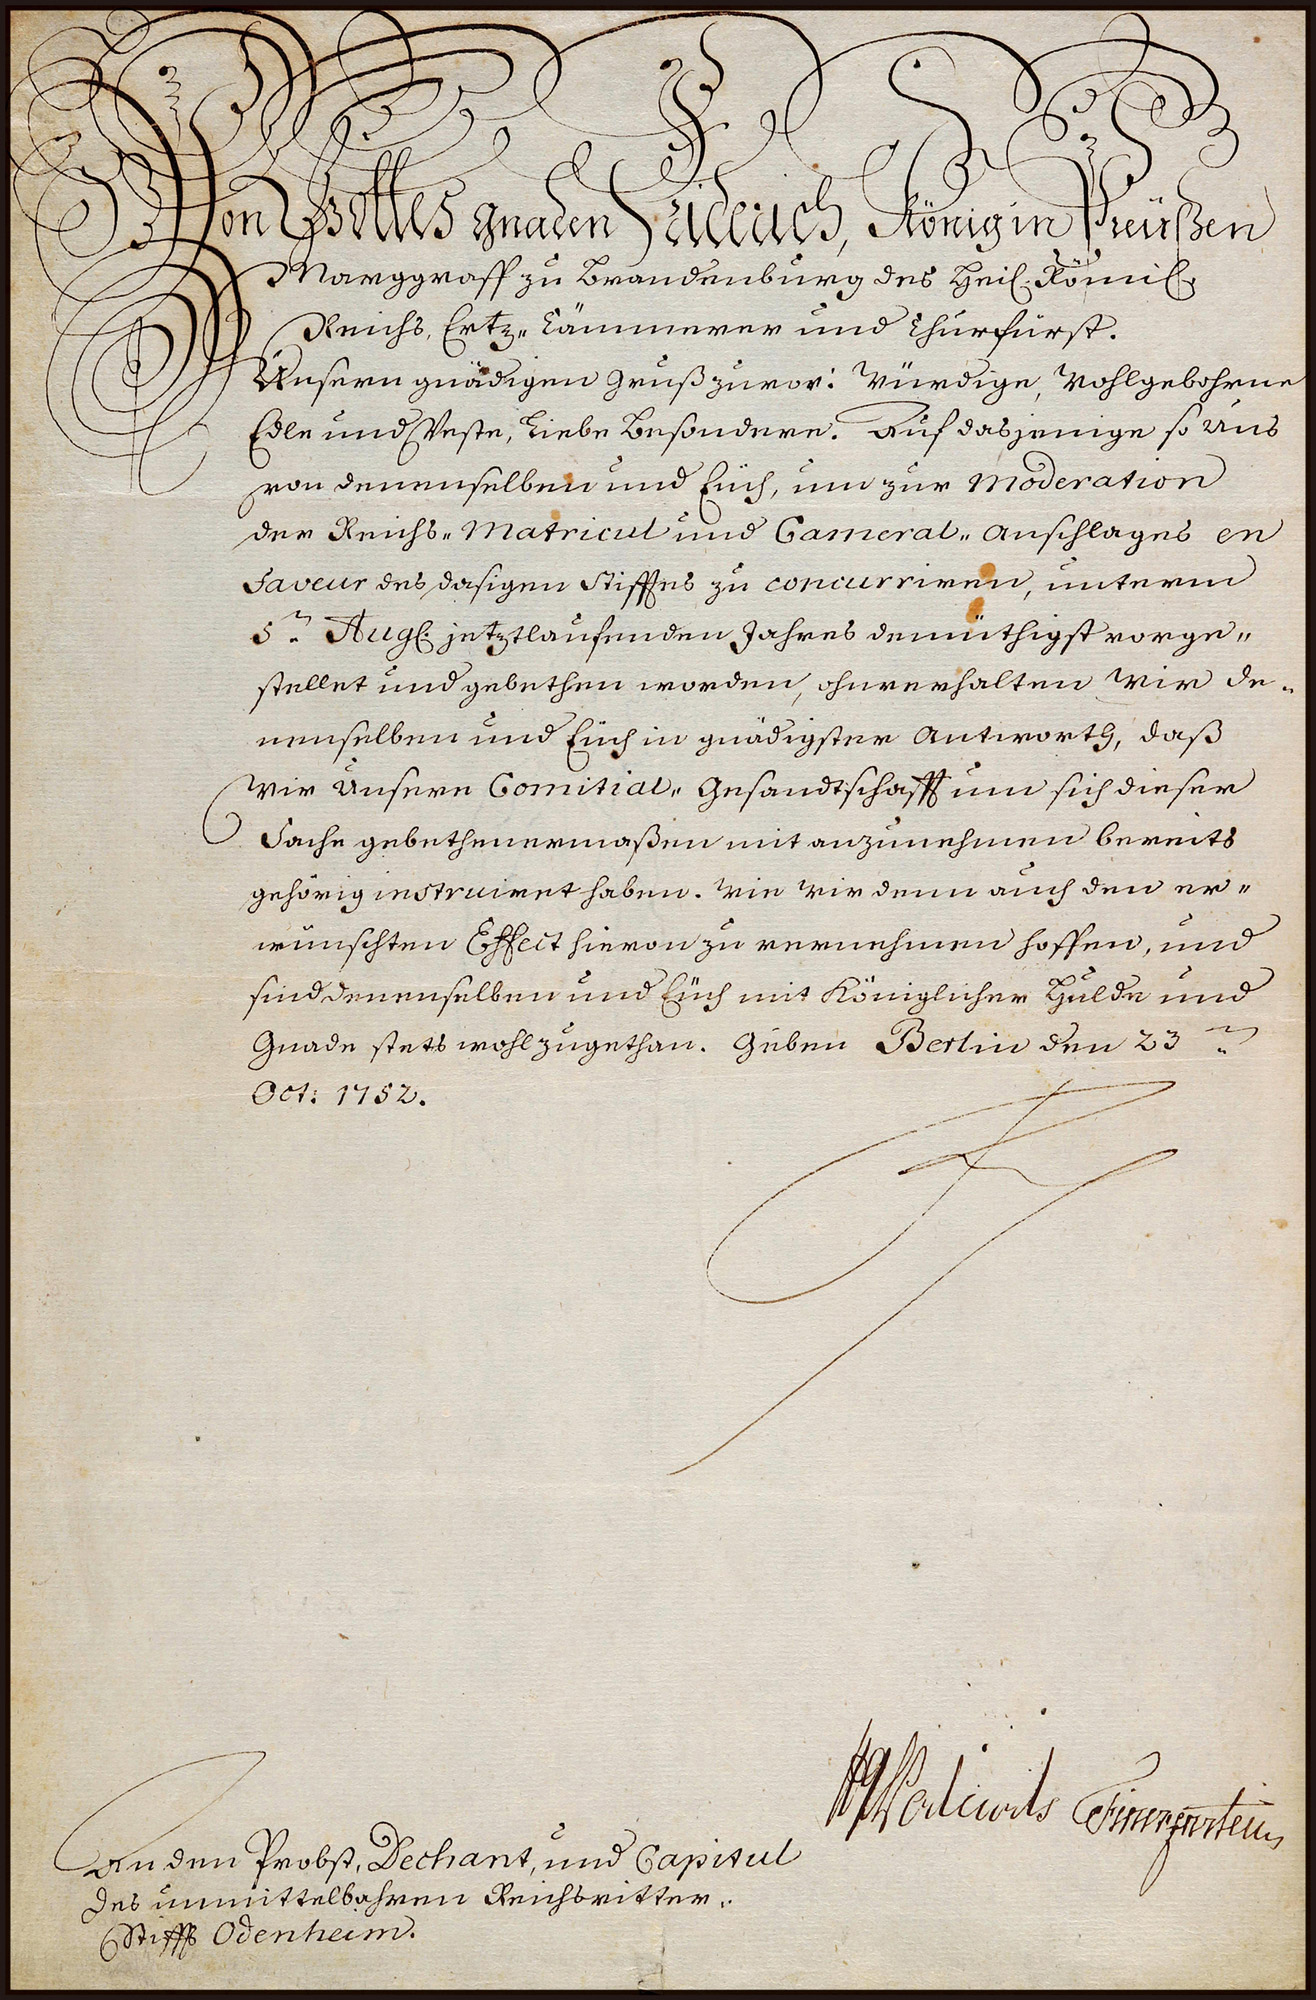 Von Gottes gnaden Friderich, König in Preüßen
Marggraff zu Brandenburg des Heil. Römis.
Reichs, Ertz- Cämmerer und Churfürst.
Unsern gnädigen Gruß zuvor: Würdige, Wohlgebohrne
Edle und Veste, Liebe Besondere. Auf dasjenige so Uns
von denenselben und Eüch, um zur Moderation
der Reichs- Matricul und Cameral- Anschlages en
Faveur des dasigen Stifftes zu concurriren, unterm
5.n Aug. jetztlaufenden Jahres demüthigst vorge-
stellet und gebethen worden, ohnverhalten Wir de-
nenselben und Eüch in gnädigster Antworth, daß
Wir Unsere Comitial- Gesandtschafft um sich dieser
Sache gebethenermaßen mit anzunehmen bereits
gehörig instruiret haben. Wie Wir denn auch den er-
wünschten Effect hievon zu vernehmen hoffen, und
sind denenselben und Eüch mit Königlicher Hulde und
Gnade stets wohlzugethan. Geben Berlin den 23.n
Oct: 1752.
Podewils Finckenstein
An den Probst, Dechant, und Capitul
des unmittelbahren Reichsritter-
Stiffts Odenheim.